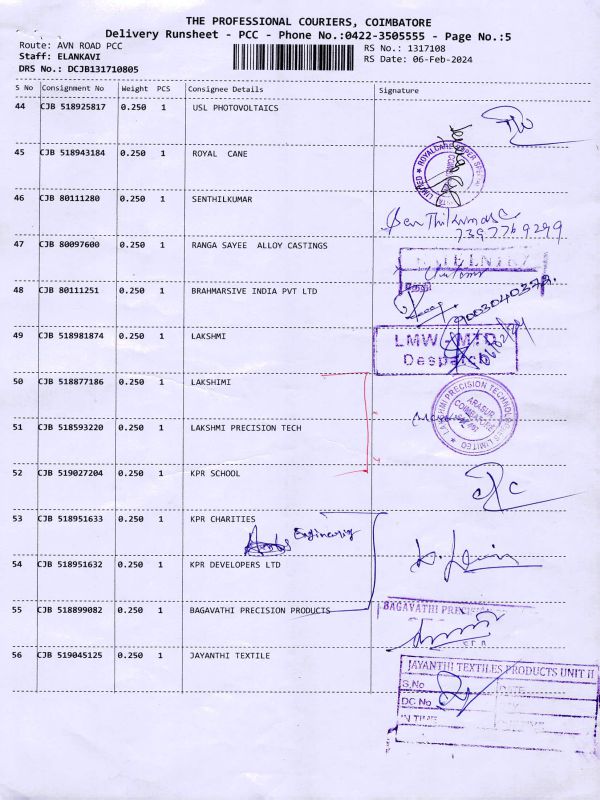 THE PROFESSIONAL COURIERS, COIMBATORE
Delivery Runsheet - PCC - Phone No.:0422-3505555 - Page No.:5
Route: AVN ROAD PCC
RS No.: 1317108
Staff: ELANKAVI
RS Date: 06-Feb-2024
DRS No.: DCJB131710805
S No Consignment No Weight PCS Consignee Details Signature
44 CJB 518925817 0.250 1 USL PHOTOVOLTAICS
45 CJB 518943184 0.250 1 ROYAL CANE
46 CJB 80111280 0.250 1 SENTHILKUMAR
Senthilkumar C
7397769299
47 CJB 80097600 0.250 1 RANGA SAYEE ALLOY CASTINGS
48 CJB 80111251 0.250 1 BRAHMARSIVE INDIA PVT LTD
9003040372
49 CJB 518981874 0.250 1 LAKSHMI
LMW - MTD
Despatch
06/02/24
50 CJB 518877186 0.250 1 LAKSHIMI
LAKSHMI PRECISION TECHNOLOGIES LIMITED
ARASUR
COIMBATORE
51 CJB 518593220 0.250 1 LAKSHMI PRECISION TECH
52 CJB 519027204 0.250 1 KPR SCHOOL
53 CJB 518951633 0.250 1 KPR CHARITIES
Engineering
54 CJB 518951632 0.250 1 KPR DEVELOPERS LTD
55 CJB 518899082 0.250 1 BAGAVATHI PRECISION PRODUCTS
BAGAVATHI PRECISION
56 CJB 519045125 0.250 1 JAYANTHI TEXTILE
JAYANTHI TEXTILES PRODUCTS UNIT II
S.No DATE
DC No
IN TIME